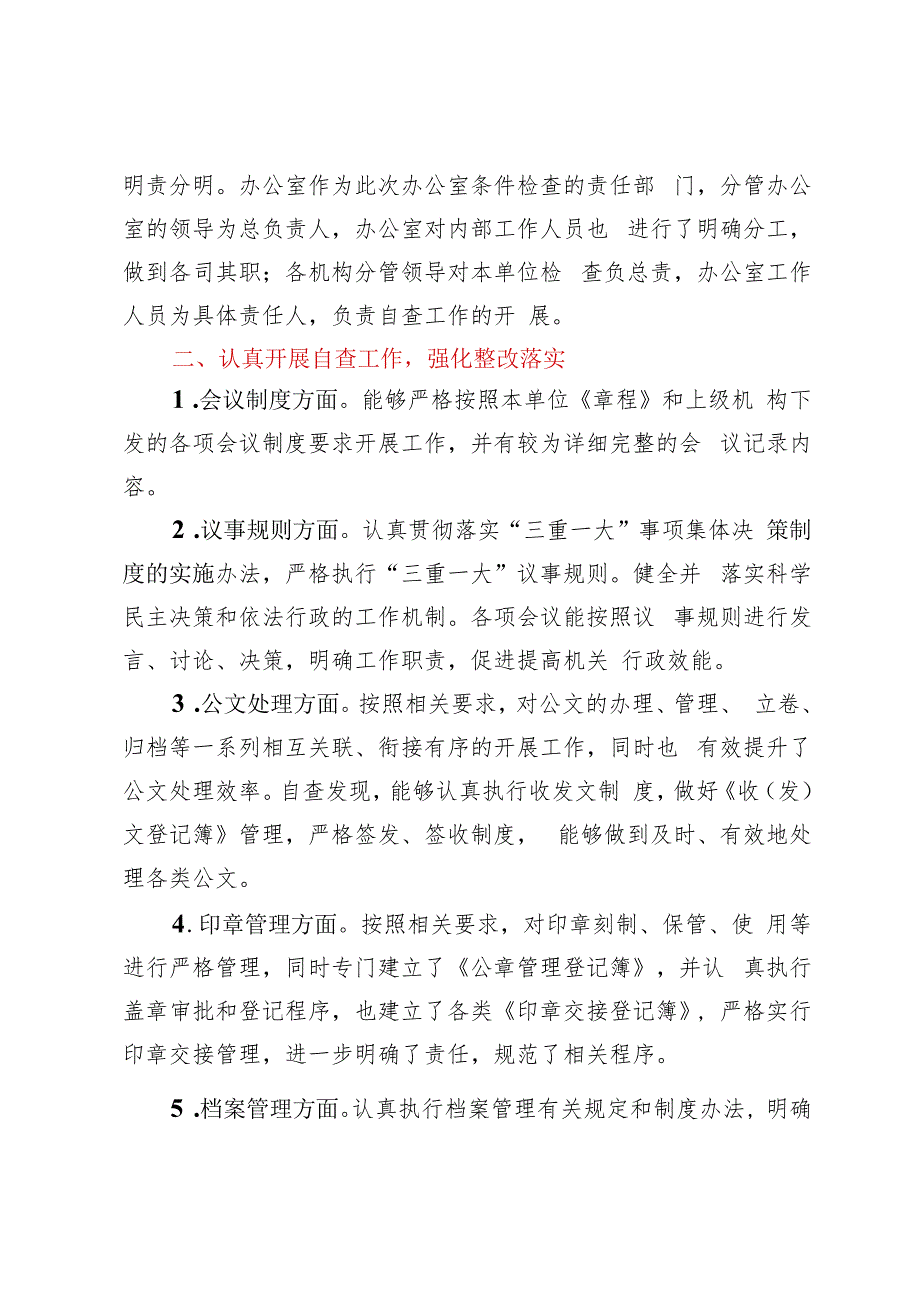 明责分明。办公室作为此次办公室条件检查的责任部 门，分管办公
室的领导为总负责人，办公室对内部工作人员也 进行了明确分工，
做到各司其职；各机构分管领导对本单位检 查负总责，办公室工作
人员为具体责任人，负责自查工作的开 展。
二、认真开展自查工作，强化整改落实
1 .会议制度方面。能够严格按照本单位《章程》和上级机 构下
发的各项会议制度要求开展工作，并有较为详细完整的会 议记录内
容。
2 .议事规则方面。认真贯彻落实“三重一大”事项集体决 策制
度的实施办法，严格执行“三重一大”议事规则。健全并 落实科学
民主决策和依法行政的工作机制。各项会议能按照议 事规则进行发
言、讨论、决策，明确工作职责，促进提高机关 行政效能。
3 .公文处理方面。按照相关要求，对公文的办理、管理、 立卷、
归档等一系列相互关联、衔接有序的开展工作，同时也 有效提升了
公文处理效率。自查发现，能够认真执行收发文制 度，做好《收（发）
文登记簿》管理，严格签发、签收制度， 能够做到及时、有效地处
理各类公文。
4. 印章管理方面。按照相关要求，对印章刻制、保管、使 用等
进行严格管理，同时专门建立了《公章管理登记簿》，并认 真执行
盖章审批和登记程序，也建立了各类《印章交接登记簿》，严格实行
印章交接管理，进一步明确了责任，规范了相关程序。
5 .档案管理方面。认真执行档案管理有关规定和制度办法，明确